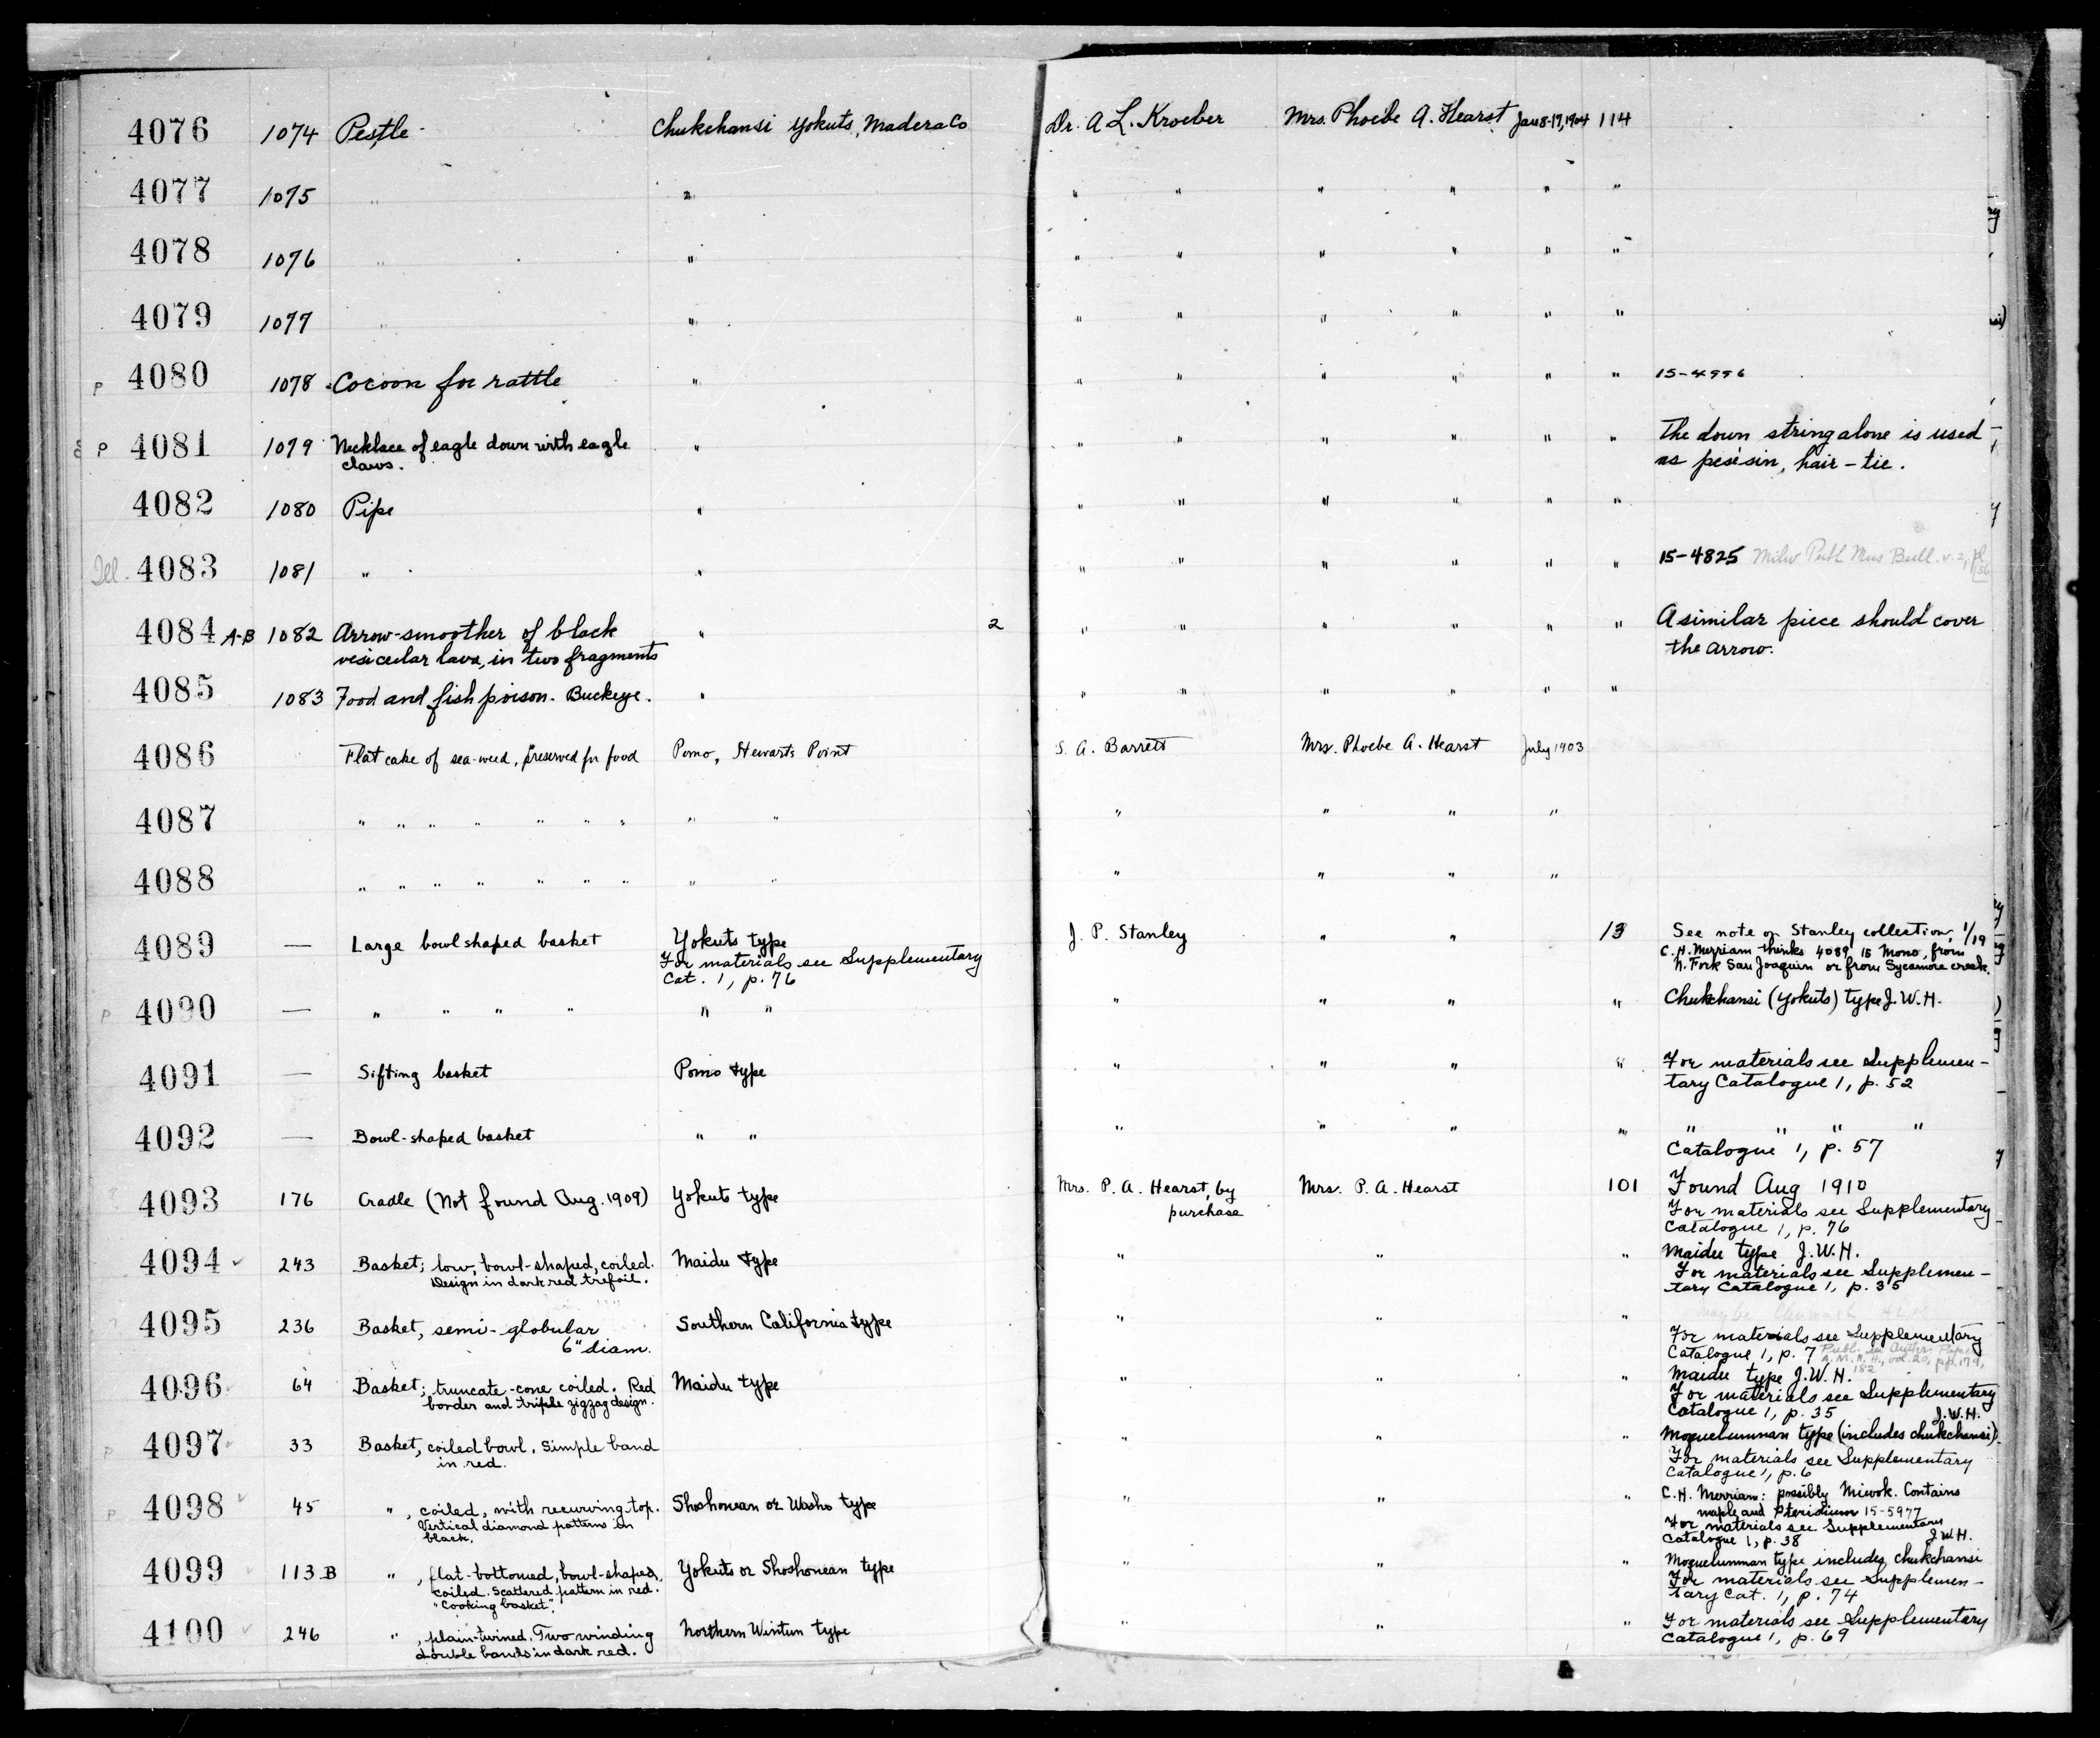 4076 1074 Pestle Chukchansi Yokuts, Madera Co Dr. A. L. Kroeber Mrs. Phoebe A. Hearst Jan 8-19, 1904 114
4077 1075 " " " " " " " "
4078 1076 " " " " " " " "
4079 1077 " " " " " " " "
P 4080 1078 Cocoon for rattle " " " " " " " 15-4996
P 4081 1079 Necklace of eagle down with eagle " " " " " " " The down string alone is used
claws. as pesësin, hair-tie.
4082 1080 Pipe " " " " " " "
Ill. 4083 1081 " " " " " " " " 15-4825 Milw Publ Mus Bull. v. 2, pl
4084 A-B 1082 Arrow-smoother of black " 2 " " " " " " A similar piece should cover
vesicular lava, in two fragments the arrow.
4085 1083 Food and fish poison. Buckeye. " " " " " " "
4086 Flat cake of sea-weed, preserved for food Pomo, Stewarts Point S. A. Barrett Mrs. Phoebe A. Hearst July 1903
4087 " " " " " " " " " " " " "
4088 " " " " " " " " " " " " "
4089 — Large bowl shaped basket Yokuts type J. P. Stanley " " 13 See note on Stanley collection, 1/19
For materials see Supplementary C. H. Merriam thinks 4089 is Mono, from
Cat. 1, p. 76 N. Fork San Joaquin or from Sycamore creek.
P 4090 — " " " " " " " " " " Chukchansi (Yokuts) type J. W. H.
4091 — Sifting basket Pomo type " " " " For materials see Supplemen-
tary Catalogue 1, p. 52
4092 — Bowl-shaped basket " " " " " " " " " "
Catalogue 1, p. 57
4093 176 Cradle (Not found Aug. 1909) Yokuts type Mrs. P. A. Hearst, by Mrs. P. A. Hearst 101 Found Aug 1910
purchase For materials see Supplementary
Catalogue 1, p. 76
4094 ✓ 243 Basket; low, bowl-shaped, coiled. Maidu type " " " Maidu type J. W. H.
Design in dark red trefoil. For materials see Supplemen-
tary Catalogue 1, p. 35
4095 236 Basket, semi-globular Southern California type " " "
6" diam. For materials see Supplementary
Catalogue 1, p. 7
4096 64 Basket; truncate-cone coiled. Red Maidu type " " " Maidu type J. W. H.
border and triple zigzag design. For materials see Supplementary
Catalogue 1, p. 35 J. W. H.
P 4097 33 Basket, coiled bowl. Simple band " " " Moquelumnan type (includes chukchansi)
in red. For materials see Supplementary
Catalogue 1, p. 6
P 4098 ✓ 45 " , coiled, with recurving top. Shoshonean or Washo type " " " C. H. Merriam: possibly Miwok. Contains
Vertical diamond patterns in maple and Pteridium 15-5977
black. For materials see Supplementary
Catalogue 1, p. 38 J. W. H.
4099 ✓ 113 B " , flat-bottomed, bowl-shaped, Yokuts or Shoshonean type " " " Moquelumnan type includes chukchansi
coiled. Scattered pattern in red. For materials see Supplemen-
"Cooking basket". tary Cat. 1, p. 74
4100 ✓ 246 " , plain-twined. Two winding Northern Wintun type " " " For materials see Supplementary
double bands in dark red. Catalogue 1, p. 69